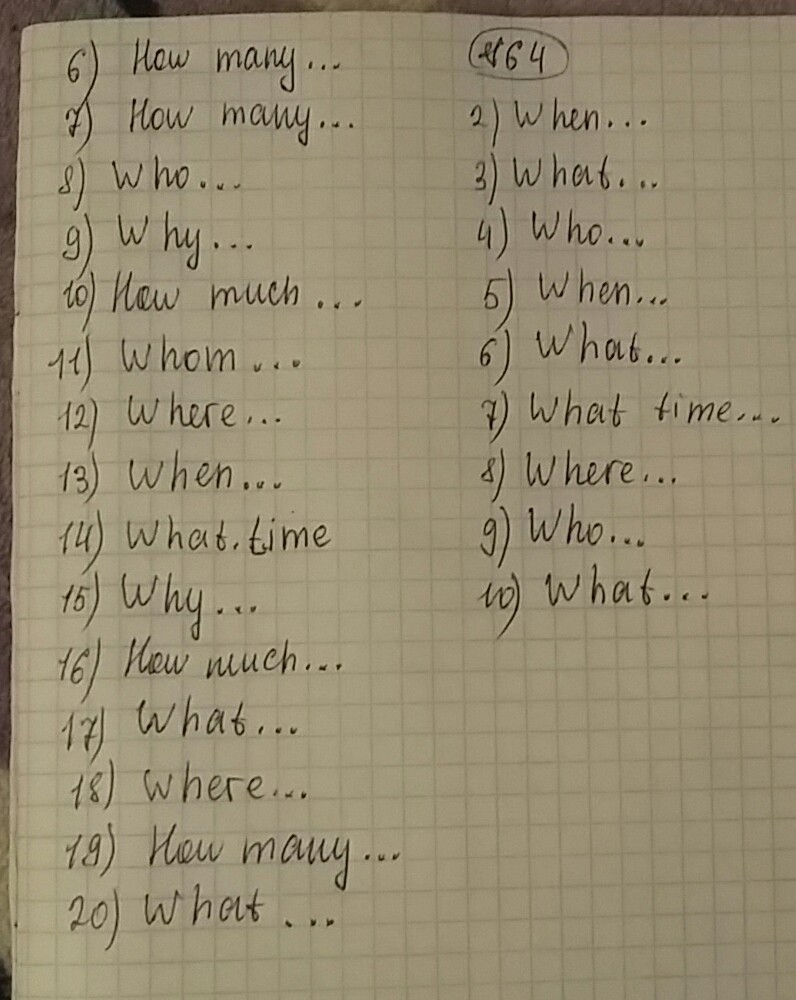 6) How many...
7) How many...
8) Who...
9) Why...
10) How much...
11) Whom...
12) Where...
13) When...
14) What.time
15) Why...
16) How much...
17) What...
18) Where...
19) How many...
20) What...
№64
2) When...
3) What...
4) Who...
5) When...
6) What...
7) What time...
8) Where...
9) Who...
10) What...